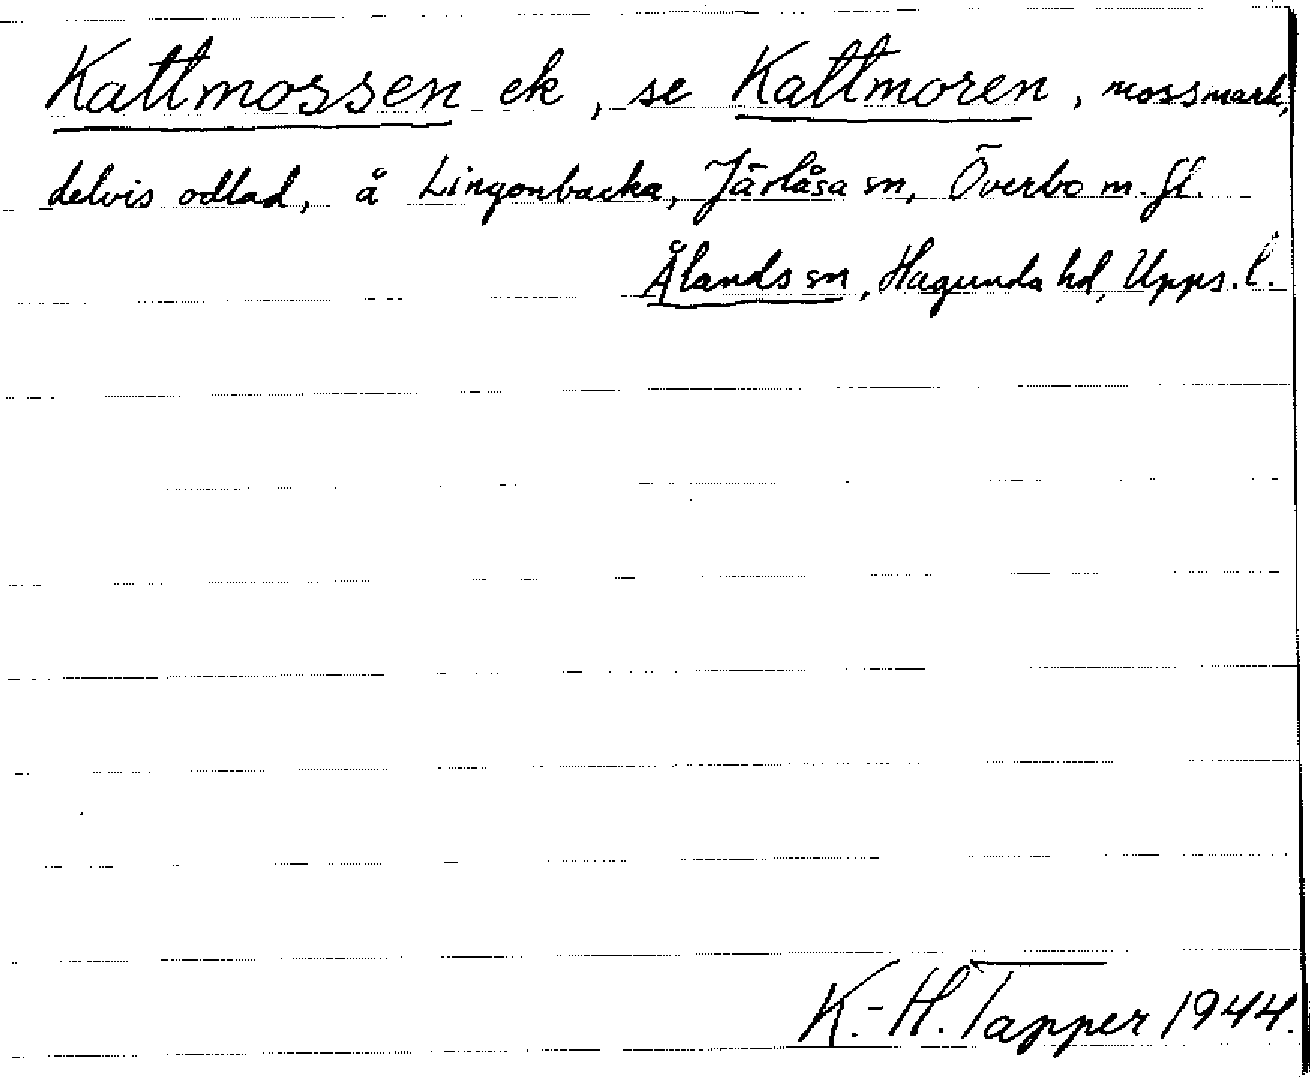 Kattmossen ek, se Kattmoren, mossmark,
delvis odlad, å Lingonbacka, Järlåsa sn, Överbo m. fl.
Ålands sn, Hagunda hd, Upps. l.
K.-H. Tapper 1944.